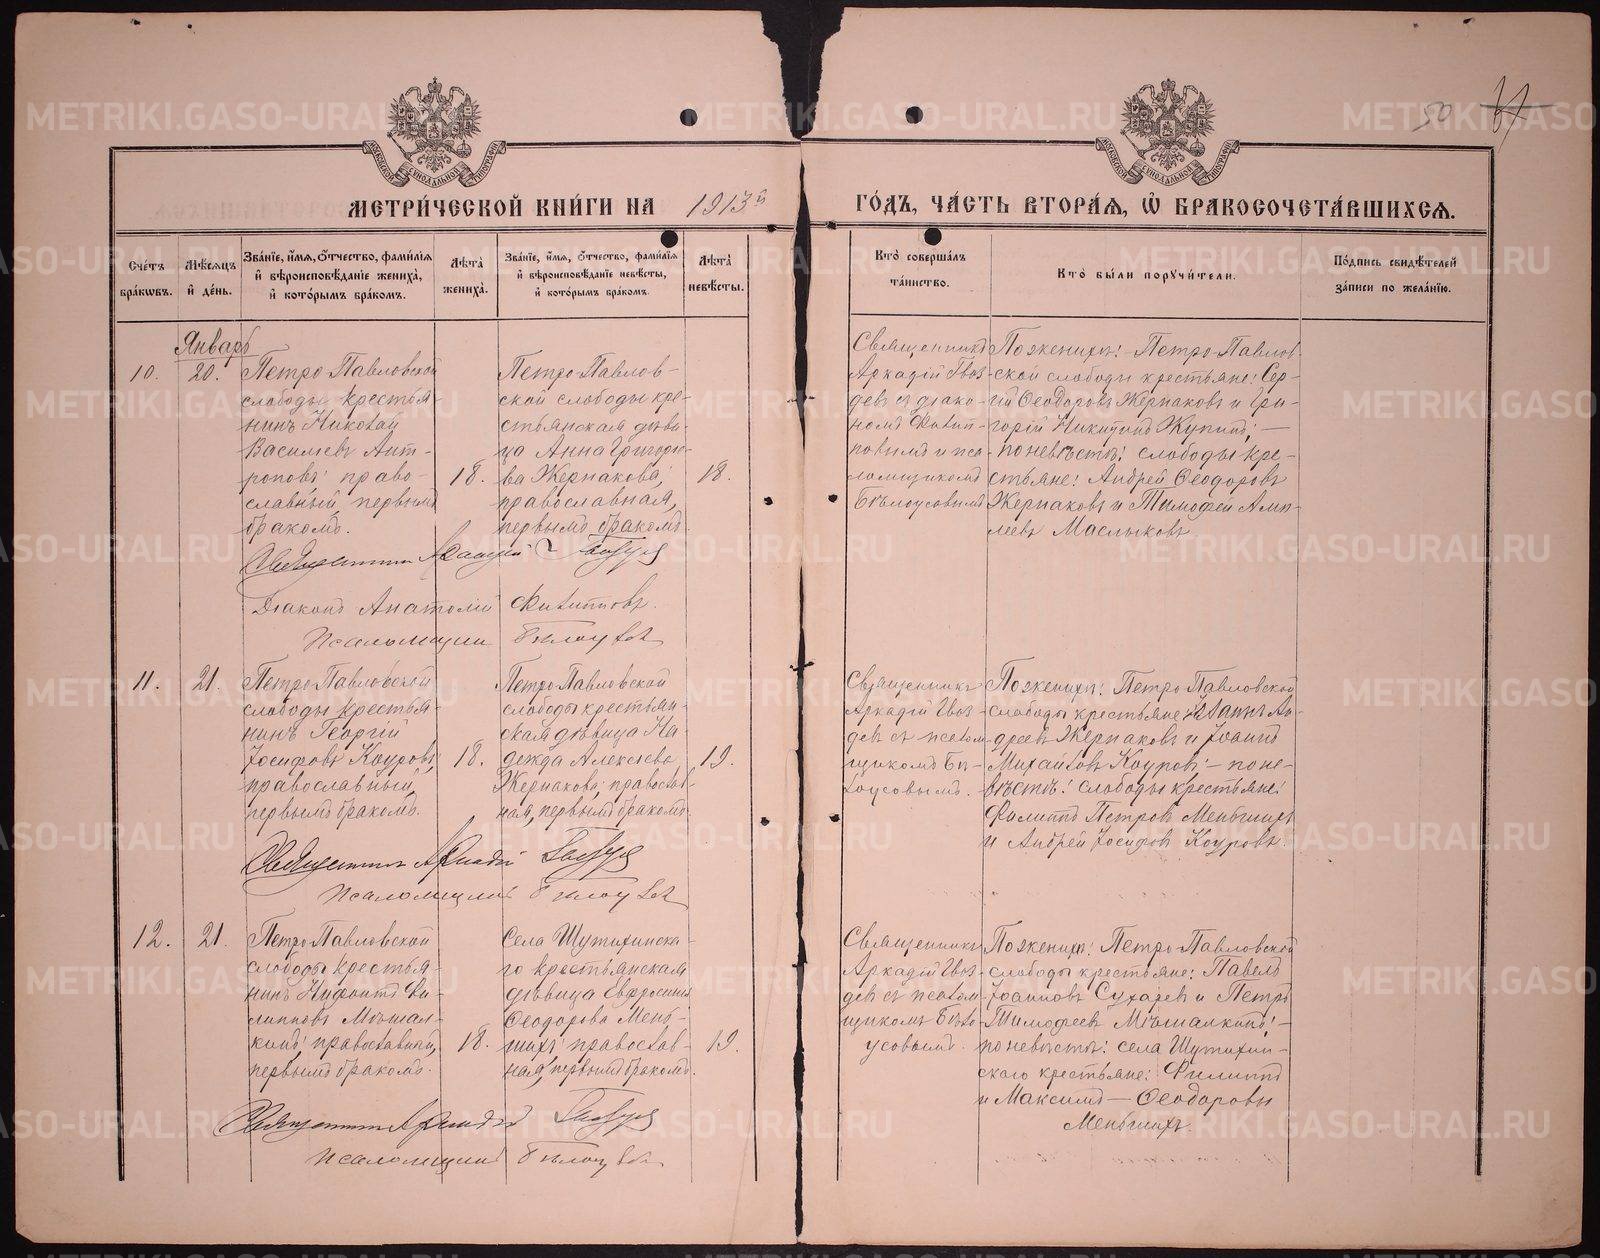 50
МЕТРИ́ЧЕСКОЙ КНИ́ГИ НА 1913й ГО́ДЪ, ЧА́СТЬ ВТОРА́Я, Ѡ БРАКОСОЧЕТА́ВШИХСЯ.
Сче́тъ бра́кѡвъ.
Мѣ́сяцъ и҆ де́нь.
Зва́нїе, и҆́мѧ, ѻ҆́тчество, фами́лїѧ и҆ вѣроисповѣ́данїе жениха̀, и҆ кото́рымъ бра́комъ.
Лѣ́та жениха̀.
Зва́нїе, и҆́мѧ, ѻ҆́тчество, фами́лїѧ и҆ вѣроисповѣ́данїе невѣ́сты, и҆ кото́рымъ бра́комъ.
Лѣ́та невѣ́сты.
Кто̀ соверша́лъ та́инство.
Кто̀ бы́ли порꙋчи́тели.
По́дпись свидѣ́телей за́писи по жела́нїю.
Январь
10.
20.
Петро Павловской
слободы крестья-
нинъ Николай
Васильевъ Ант-
роповъ; право-
славный, первымъ
бракомъ.
18.
Петро-Павлов-
ской слободы кре-
стьянская дѣви-
ца Анна Григорье-
ва Жернакова;
православная,
первымъ бракомъ.
18.
Священникъ
Аркадій Гвоз-
девъ съ діако-
номъ Филип-
повымъ и пса-
ломщикомъ
Бѣлоусовымъ
По женихѣ: Петро-Павлов-
ской слободы крестьяне: Сер-
гій Ѳеодоровъ Жернаковъ и Гри-
горій Никитинъ Жупинъ; —
по невѣстѣ: слободы кре-
стьяне: Андрей Ѳеодоровъ
Жернаковъ и Тимофей
Маслыковъ.
Священникъ Аркадій Гвоздев
Діаконъ Анатолій Филипповъ.
Псаломщик Бѣлоусов
11.
21.
Петро Павловской
слободы крестья-
нинъ Георгій
Іосифовъ Коуровъ,
православный,
первымъ бракомъ.
18.
Петро-Павловской
слободы крестьян-
ская дѣвица На-
дежда Алексѣева
Жернакова; православ-
ная, первымъ бракомъ.
19.
Священникъ
Аркадій Гвоз-
девъ съ псалом-
щикомъ Бѣ-
лоусовымъ.
По женихѣ: Петро Павловской
слободы крестьяне: Іоаннъ Ан-
дреевъ Жернаковъ и Іоаннъ
Михайловъ Коуровъ; — по не-
вѣстѣ: слободы крестьяне:
Филиппъ Петровъ Меньшихъ
и Андрей Іосифовъ Коуровъ.
Священникъ Аркадій Гвоздев
Псаломщикъ Бѣлоусов
12.
21.
Петро Павловской
слободы крестья-
нинъ Нифонтъ Фи-
липповъ Мѣшал-
кинъ; православный,
первымъ бракомъ.
18.
Села Шутихинска-
го крестьянская
дѣвица Евфросинія
Ѳеодорова Мень-
шихъ; православ-
ная, первымъ бракомъ.
19.
Священникъ
Аркадій Гвоз-
девъ съ псалом-
щикомъ Бѣло-
усовымъ.
По женихѣ: Петро Павловской
слободы крестьяне: Павелъ
Іоанновъ Сухаревъ и Петръ
Тимофеевъ Мѣшалкинъ; —
по невѣстѣ: села Шутихин-
скаго крестьяне: Филиппъ
и Максимъ — Ѳеодоровы
Меньшихъ.
Священникъ Аркадій Гвоздев
Псаломщикъ Бѣлоусов
METRIKI.GASO-URAL.RU